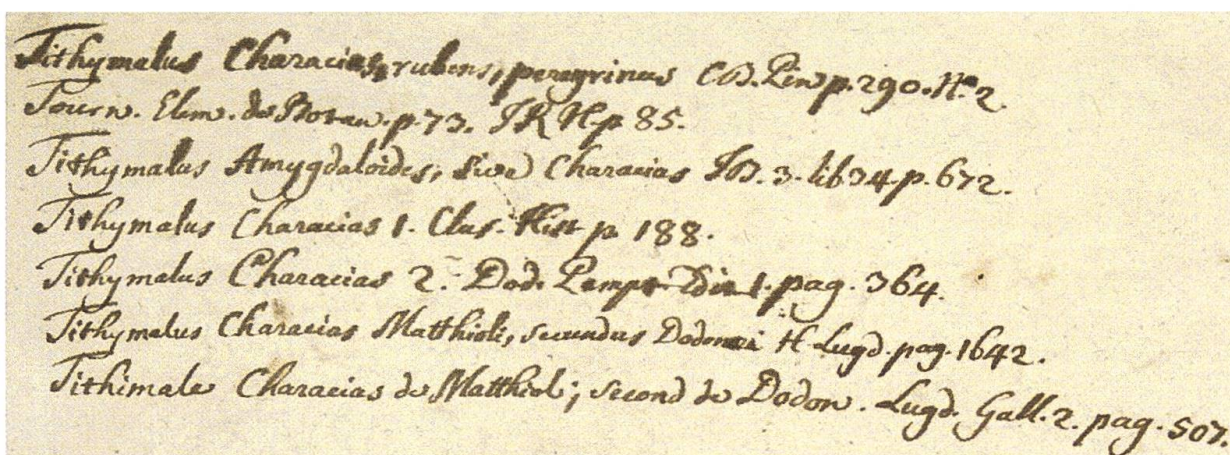 Tithymalus Characias, rubens, peregrinus CB. Pin p. 290. N.° 2.
Tourn. Elem. de Botan. p. 73. IRH p 85.
Tithymalus Amygdaloides, sive Characias IB. 3. lib 34. p. 672.
Tithymalus Characias 1. Clus. Hist p 188.
Tithymalus Characias 2. Dod. Pempt Edit 1. pag. 364.
Tithymalus Characias Matthioli, secundus Dodonæi H Lugd. pag. 1642.
Tithimale Characias de Matthiol; second de Dodon. Lugd. Gall. 2. pag. 507.